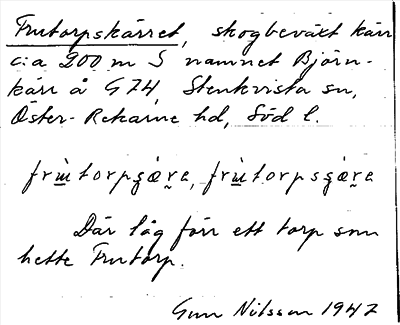 Frutorpskärret, skogbeväxt kärr
c:a 200 m S namnet Björn-
kärr å G74 Stenkvista sn,
Öster-Rekarne hd, Söd l.
frùtorpsçæ̀ra, frùtorpsçæ̀ra
Där låg förr ett torp som
hette Frutorp.
Gun Nilsson 1947